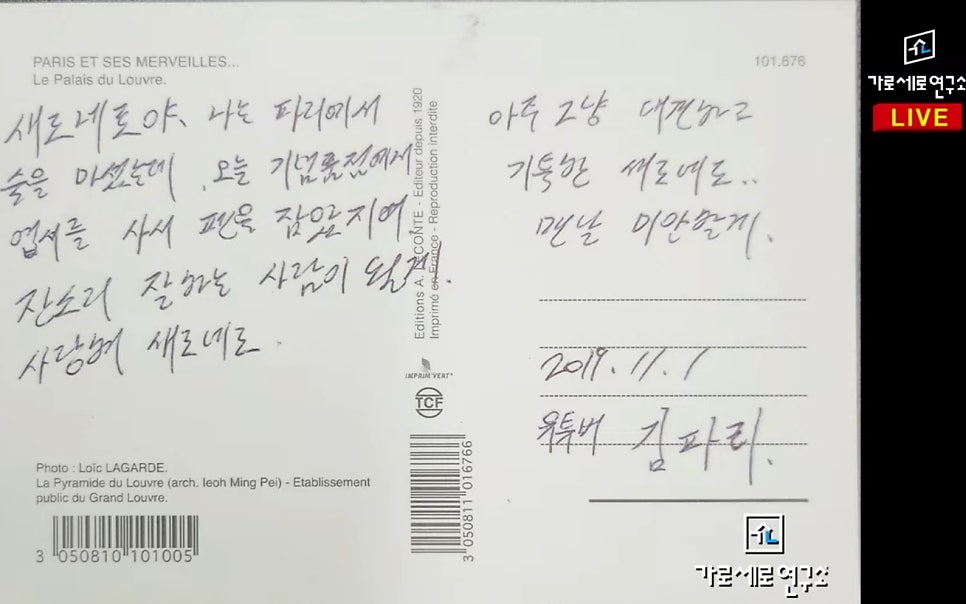 PARIS ET SES MERVEILLES...
Le Palais du Louvre.
101.676
새로네로야, 나는 파리에서
술을 마셨는데, 오늘 기념품점에서
엽서를 사서 펜을 잡았지여
잔소리 잘하는 사람이 될게.
사랑해 새로네로.
Photo : Loïc LAGARDE.
La Pyramide du Louvre (arch. Ieoh Ming Pei) - Etablissement
public du Grand Louvre.
3 050810 101005
Editions A. LECONTE - Editeur depuis 1920
Imprimé en France - Reproduction interdite
IMPRIM'VERT
TCF
3 050811 016766
아주 그냥 대견하고
기특한 새로네로..
맨날 미안할게.
2019.11.1
유투버 김파리.
가로세로연구소
가로세로연구소
LIVE